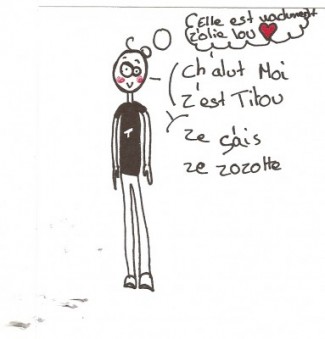 Elle est vachment
z'olie lou
Ch'alut Moi
z'est Titou
ze çais
ze zozotte
T